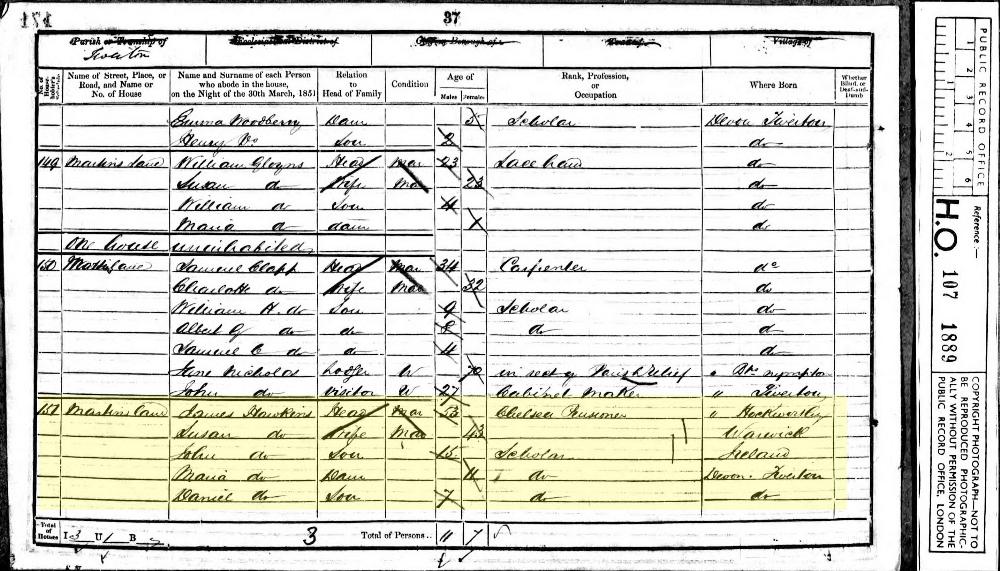 171
37
Parish or Township of Ecclesiastical District of City or Borough of Town of Village of
Tiverton
No. of House-holder's Schedule Name of Street, Place, or Road, and Name or No. of House Name and Surname of each Person who abode in the house, on the Night of the 30th March, 1851 Relation to Head of Family Condition Age of Males Females Rank, Profession, or Occupation Where Born Whether Blind, or Deaf-and-Dumb
Emma Woodberry Daur 5 Scholar Devon Tiverton
Henry Do Son 2 do
149 Martins Lane William Gloyns Head Mar 23 Lace hand do
Susan do Wife Mar 23 do
William do Son 4 do
Maria do daur 1 do
One house uninhabited
150 Martins Lane Samuel Clapp Head Mar 34 Carpenter do
Charlotte do Wife Mar 32 do
William H. do Son 9 Scholar do
Albert G do do 8 do do
Samuel C do do 4 do
Jane Nicholds Lodger W 70 in rect of Parish Relief "
John do Visitor W 27 Cabinet Maker " Tiverton
151 Martins Lane James Hawkins Head Mar 53 Chelsea Pensioner " Hockworthy
Susan do Wife Mar 43 Warwick
John do Son 15 Scholar Ireland
Maria do Daur 11 do Devon. Tiverton
Daniel do Son 7 do do
Total of Houses I 3 U 1 B 3 Total of Persons.. 11 7
PUBLIC RECORD OFFICE
1 2 3 4 5 6
Reference:-
H.O. 107 1889
COPYRIGHT PHOTOGRAPH—NOT TO BE REPRODUCED PHOTOGRAPHICALLY WITHOUT PERMISSION OF THE PUBLIC RECORD OFFICE, LONDON